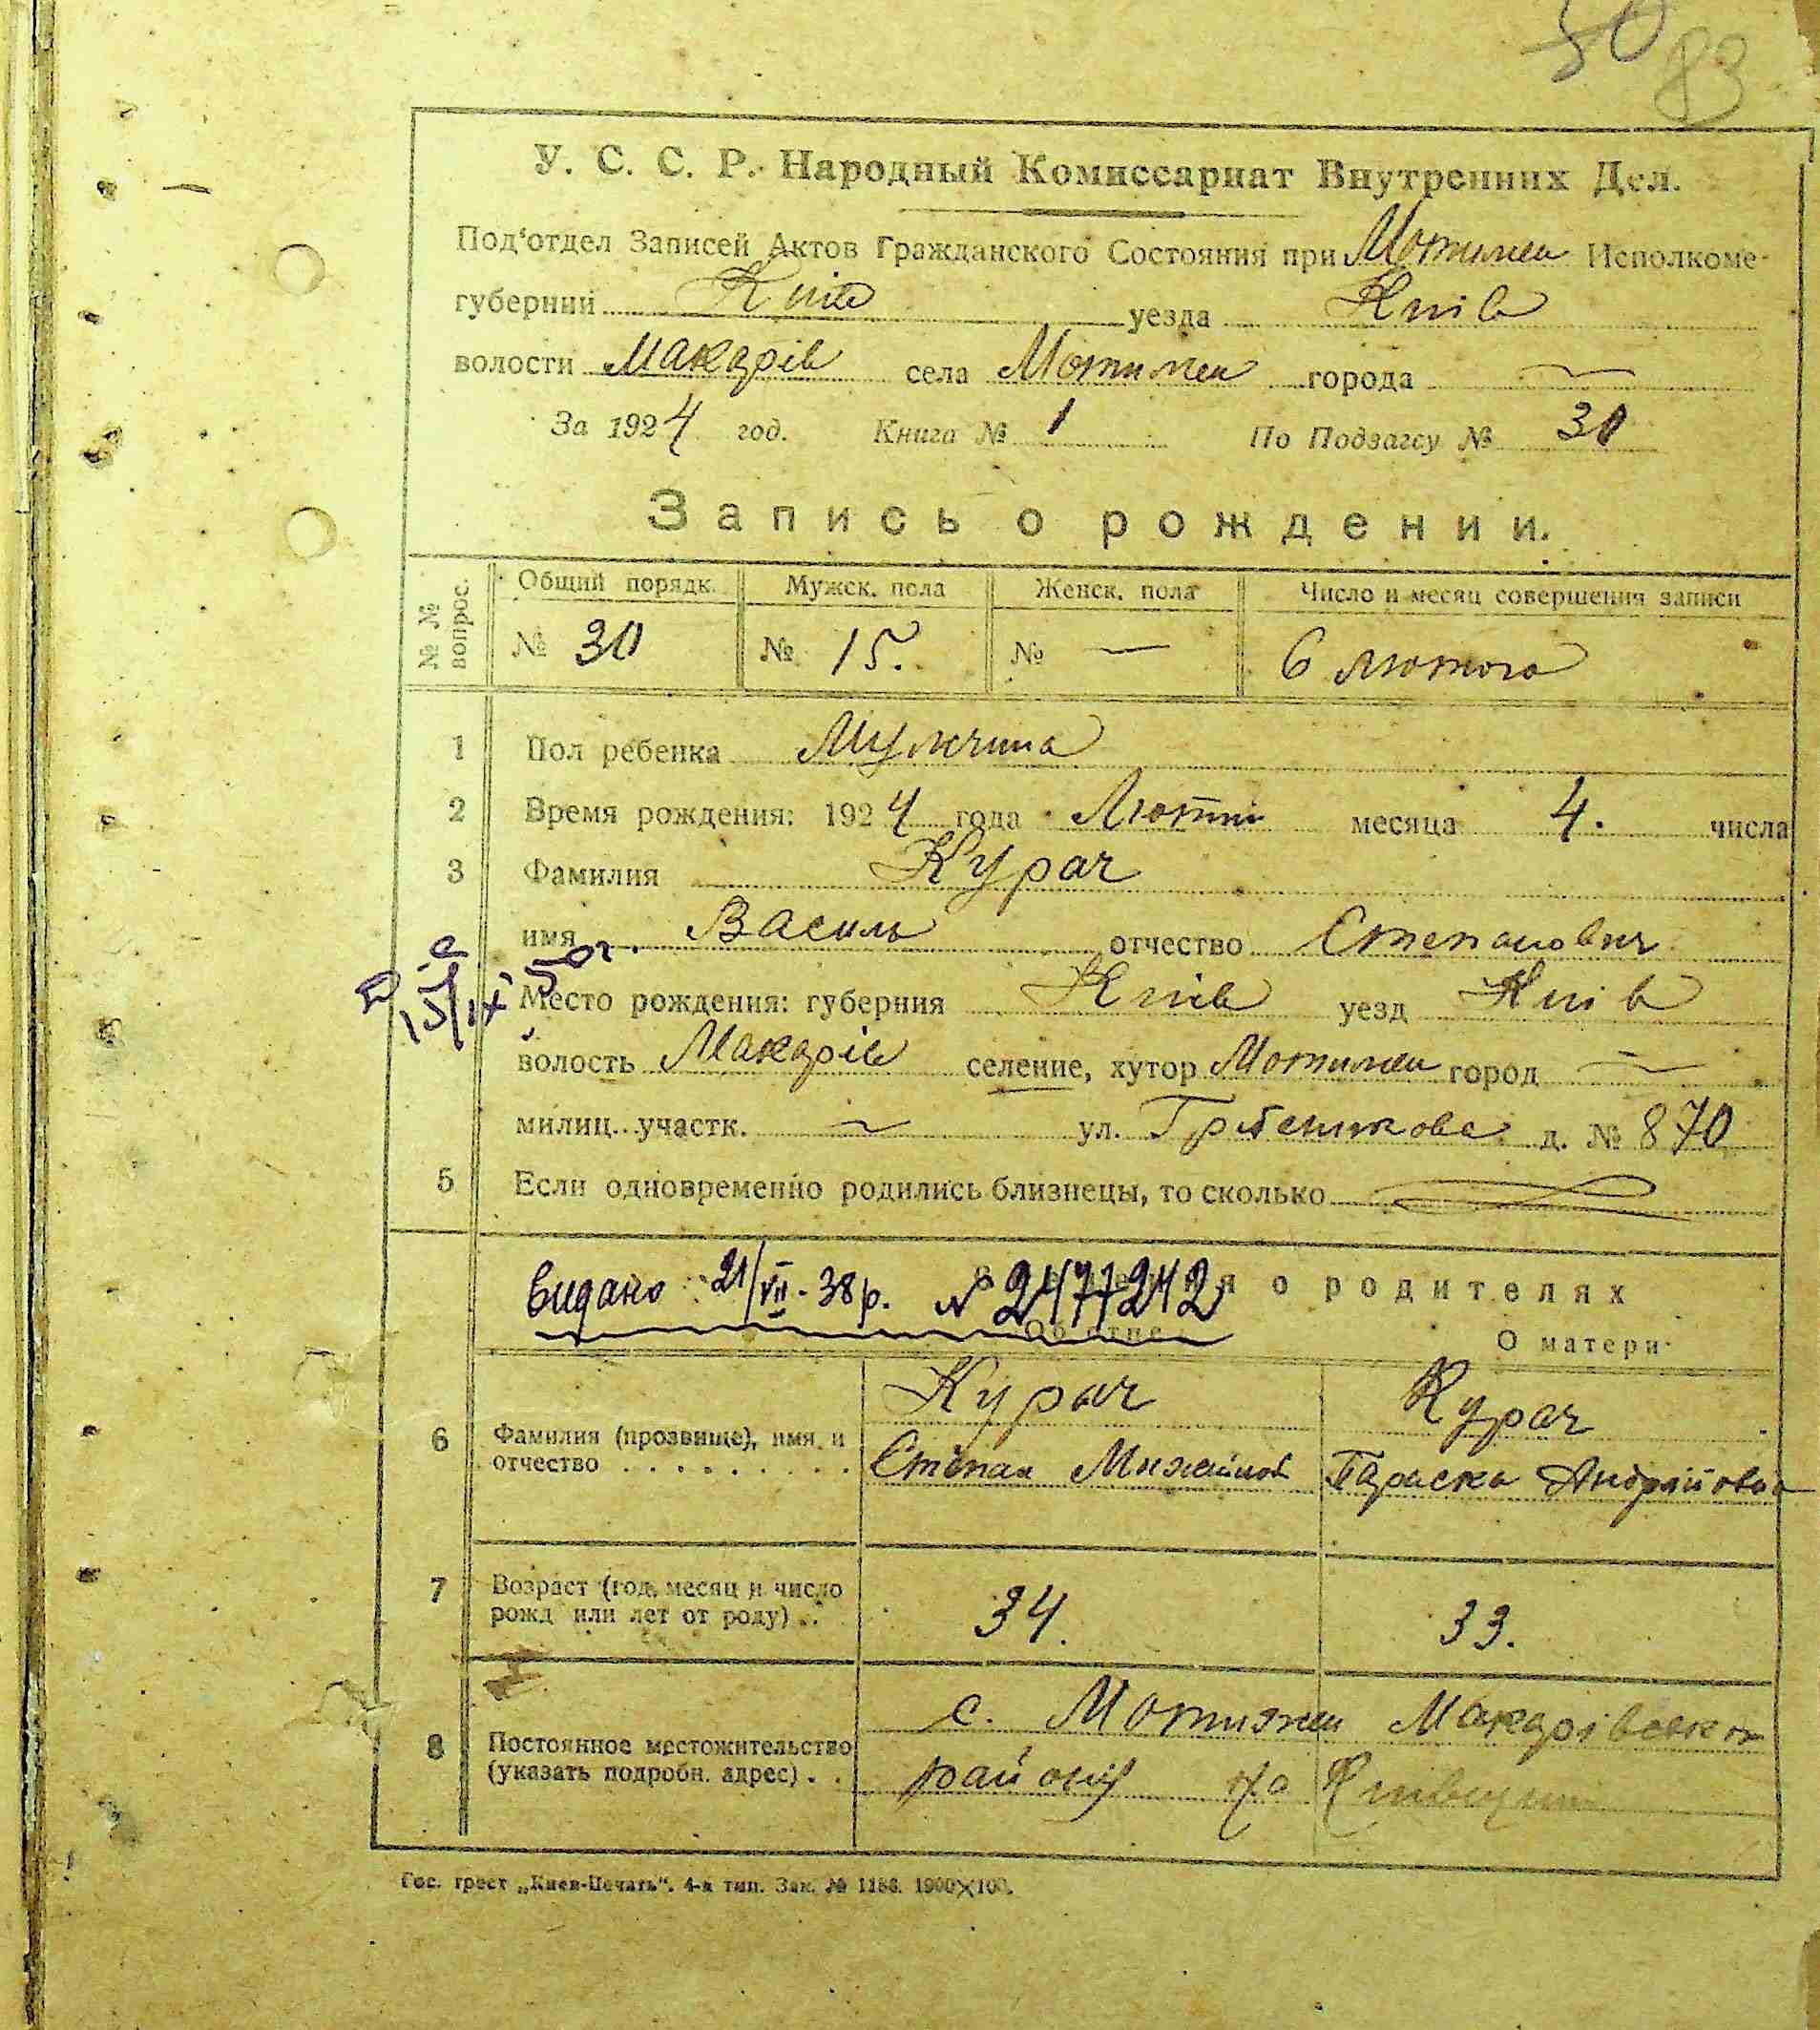 50 83
У. С. С. Р. Народный Комиссариат Внутренних Дел.
Под'отдел Записей Актов Гражданского Состояния при Мотижен Исполкоме
губернии Київ уезда Київ
волости Макарів села Мотижен города —
За 1924 год. Книга № 1 По Подзагсу № 30
Запись о рождении.
№ № вопрос. Общий порядк. Мужск. пола Женск. пола Число и месяц совершения записи
№ 30 № 15. № — 6 лютого
1 Пол ребенка Мужчина
2 Время рождения: 1924 года Лютий месяца 4. числа
3 Фамилия Курач
имя Василь отчество Степанович
Место рождения: губерния Київ уезд Київ
волость Макарів селение, хутор Мотижен город —
милиц. участк. — ул. д. № 870
5 Если одновременно родились близнецы, то сколько
видано 21/VII - 38 р. № 2477242 о родителях
Об отце О матери
Курач Курач
6 Фамилия (прозвище), имя и
отчество Степан Михайлов Параска Андрійовна
7 Возраст (год, месяц и число
рожд или лет от роду) 34. 33.
с. Мотижен Макарівськ
8 Постоянное местожительство
(указать подробн. адрес) району на Київщині
Гос. трест „Киев-Печать". 4-я тип. Зак. № 1156. 1900×100.